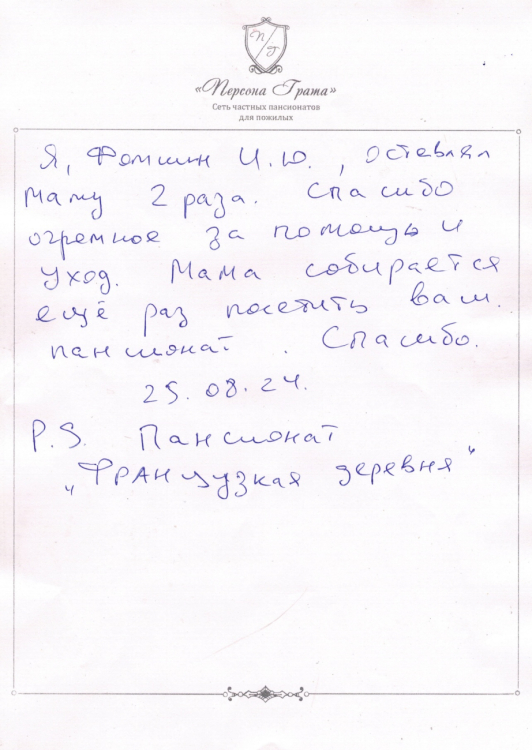 П/Г
«Персона Грата»
Сеть частных пансионатов
для пожилых
Я, Фомшин И.Ю., оставлял
маму 2 раза. Спасибо
огремное за помощь и
уход. Мама собирается
ещё раз посетить ваш.
пансионат. Спасибо.
25.08.24.
P.S. Пансионат
„Французкая деревня"